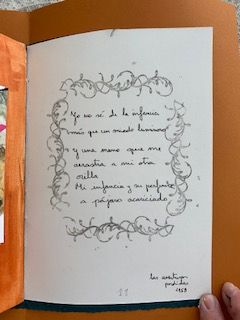 Yo no sé de la infancia
más que un miedo luminoso
y una mano que me
arrastra a mi otra
orilla
Mi infancia y su perfume
a pájaro acariciado.
las aventuras
perdidas
1958
11